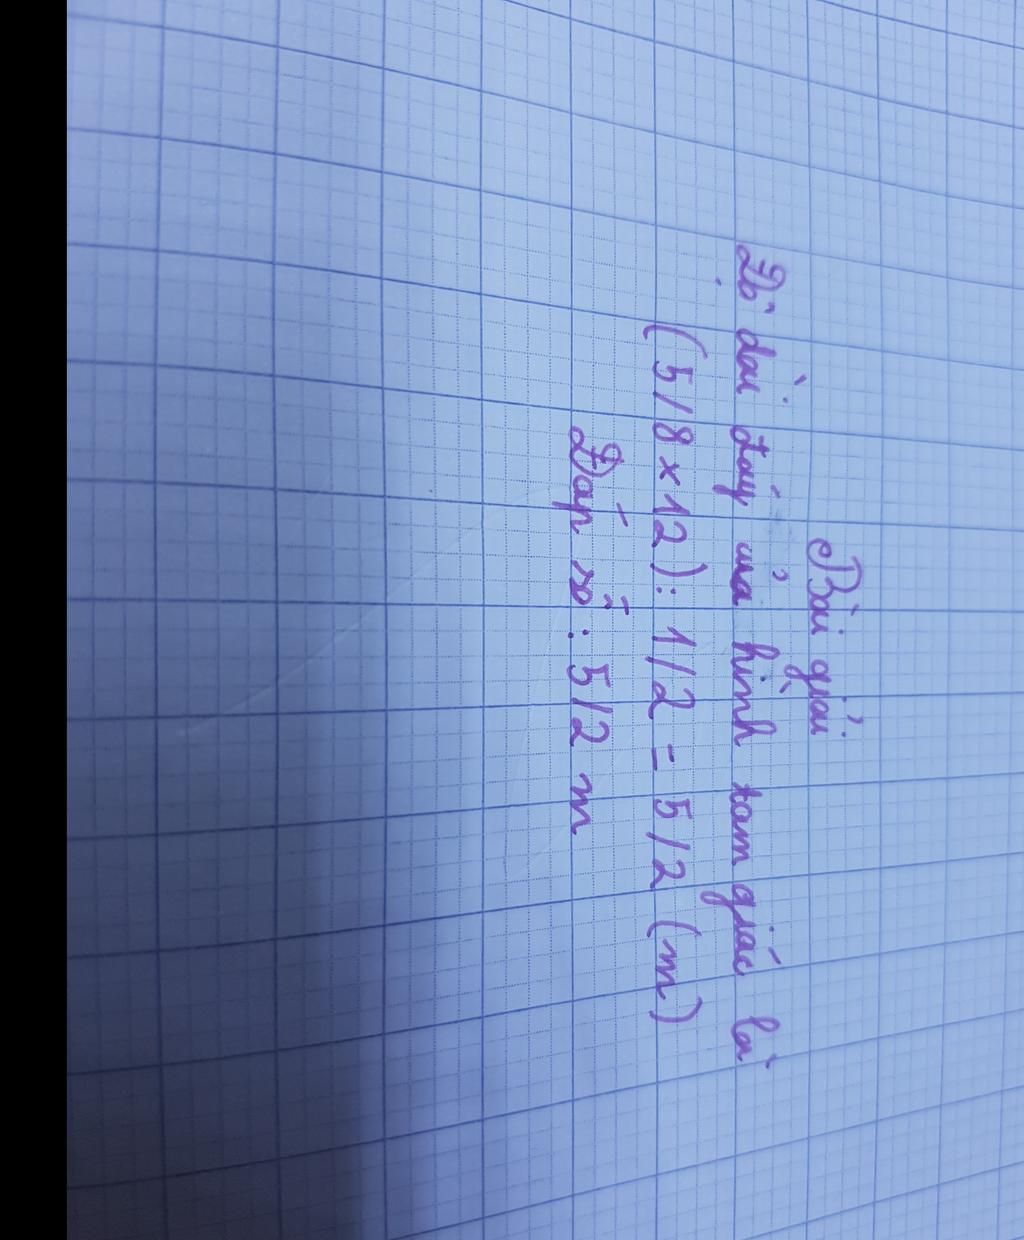 Bài giải
Độ dài đáy của hình tam giác là
(5/8 x 12) : 1/2 = 5/2 (m)
Đáp số : 5/2 m